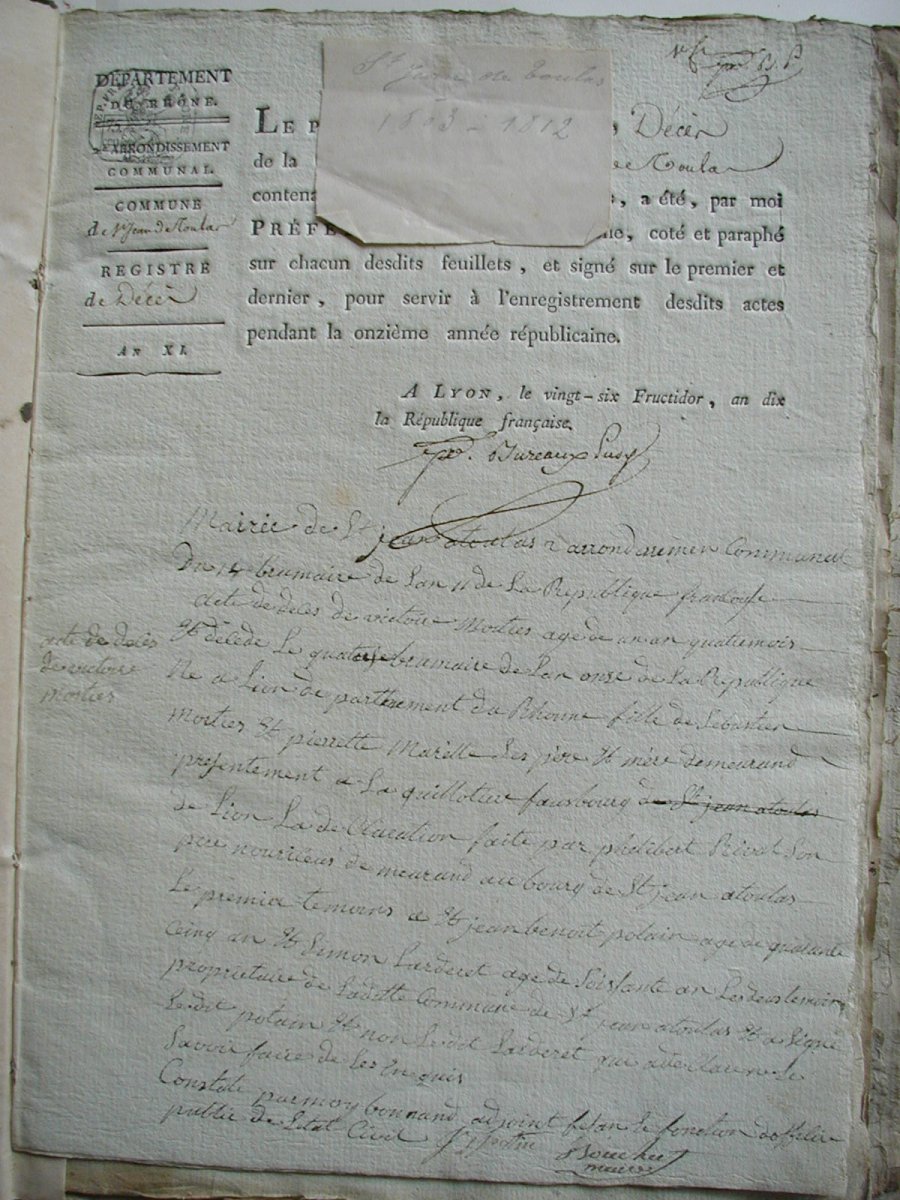 DÉPARTEMENT
DU RHÔNE.
ARRONDISSEMENT
COMMUNAL.
COMMUNE
de St Jean de Toulas
REGISTRE
de Décès
AN XI.
St Jean de Toulas
1803 - 1812
LE P Décès
de la de Toulas
contena , a été, par moi
PRÉFE ne, coté et paraphé
sur chacun desdits feuillets, et signé sur le premier et
dernier, pour servir à l'enregistrement desdits actes
pendant la onzième année républicaine.
A LYON, le vingt-six Fructidor, an dix
la République française.
Bureaux Pusy
Mairie de St jean atoulas arrondisemen Communal
Du 14 brumaire de Lan 11 de La Republique
acte de deces de victoire Mortier age de un an quatremois
Et décédé Le quatorse brumaire de Lan onse de La Republique
Ne a Lion departtement du Rhonne fille de Sebastien
Mortier Et pierrette Marelle Ses père Et mère demeurand
presentement a La guillotiere fausbourg de St jean atoulas
de Lion La declaration faite par philibert Rivat Son
pere nouricier demeurand au bourg de St jean atoulas
Le premier temoins a Et jean benoit polain age de quarante
Cinq an Et Simon Larderet age de Soisante an Les deux temoins
propriétaire de Ladette Commune de St jean atoulas Et a Signé
Le dit polain Et non Le dit Larderet qui a declaré ne Le
Savoir faire de Ses Enquis
Constaté par moy bonnand adjoint fesan Le fonction dofficier
public de Letat Civil
acte de deces
de victoire
mortier